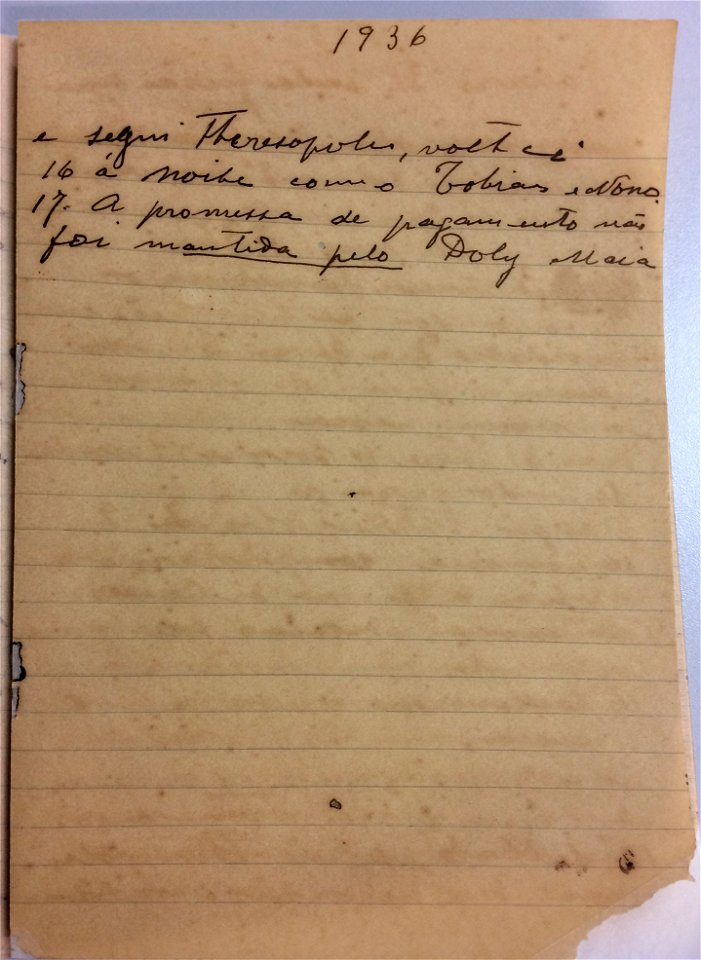 1936
e segui Theresopolis, voltei
16 á noite com o Tobias e Nono.
17. A promessa de pagamento não
foi mantida pelo Doly Maia